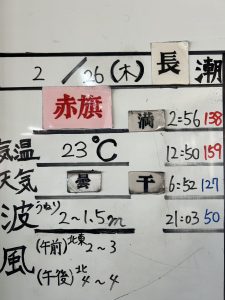 2/26(木) 長潮
赤旗 満 2:56 138
気温 23℃ 12:50 159
天気 曇 干 6:52 127
波 うねり 2~1.5m 21:03 50
風 (午前) 北東 2~3
(午後) 北 4~4